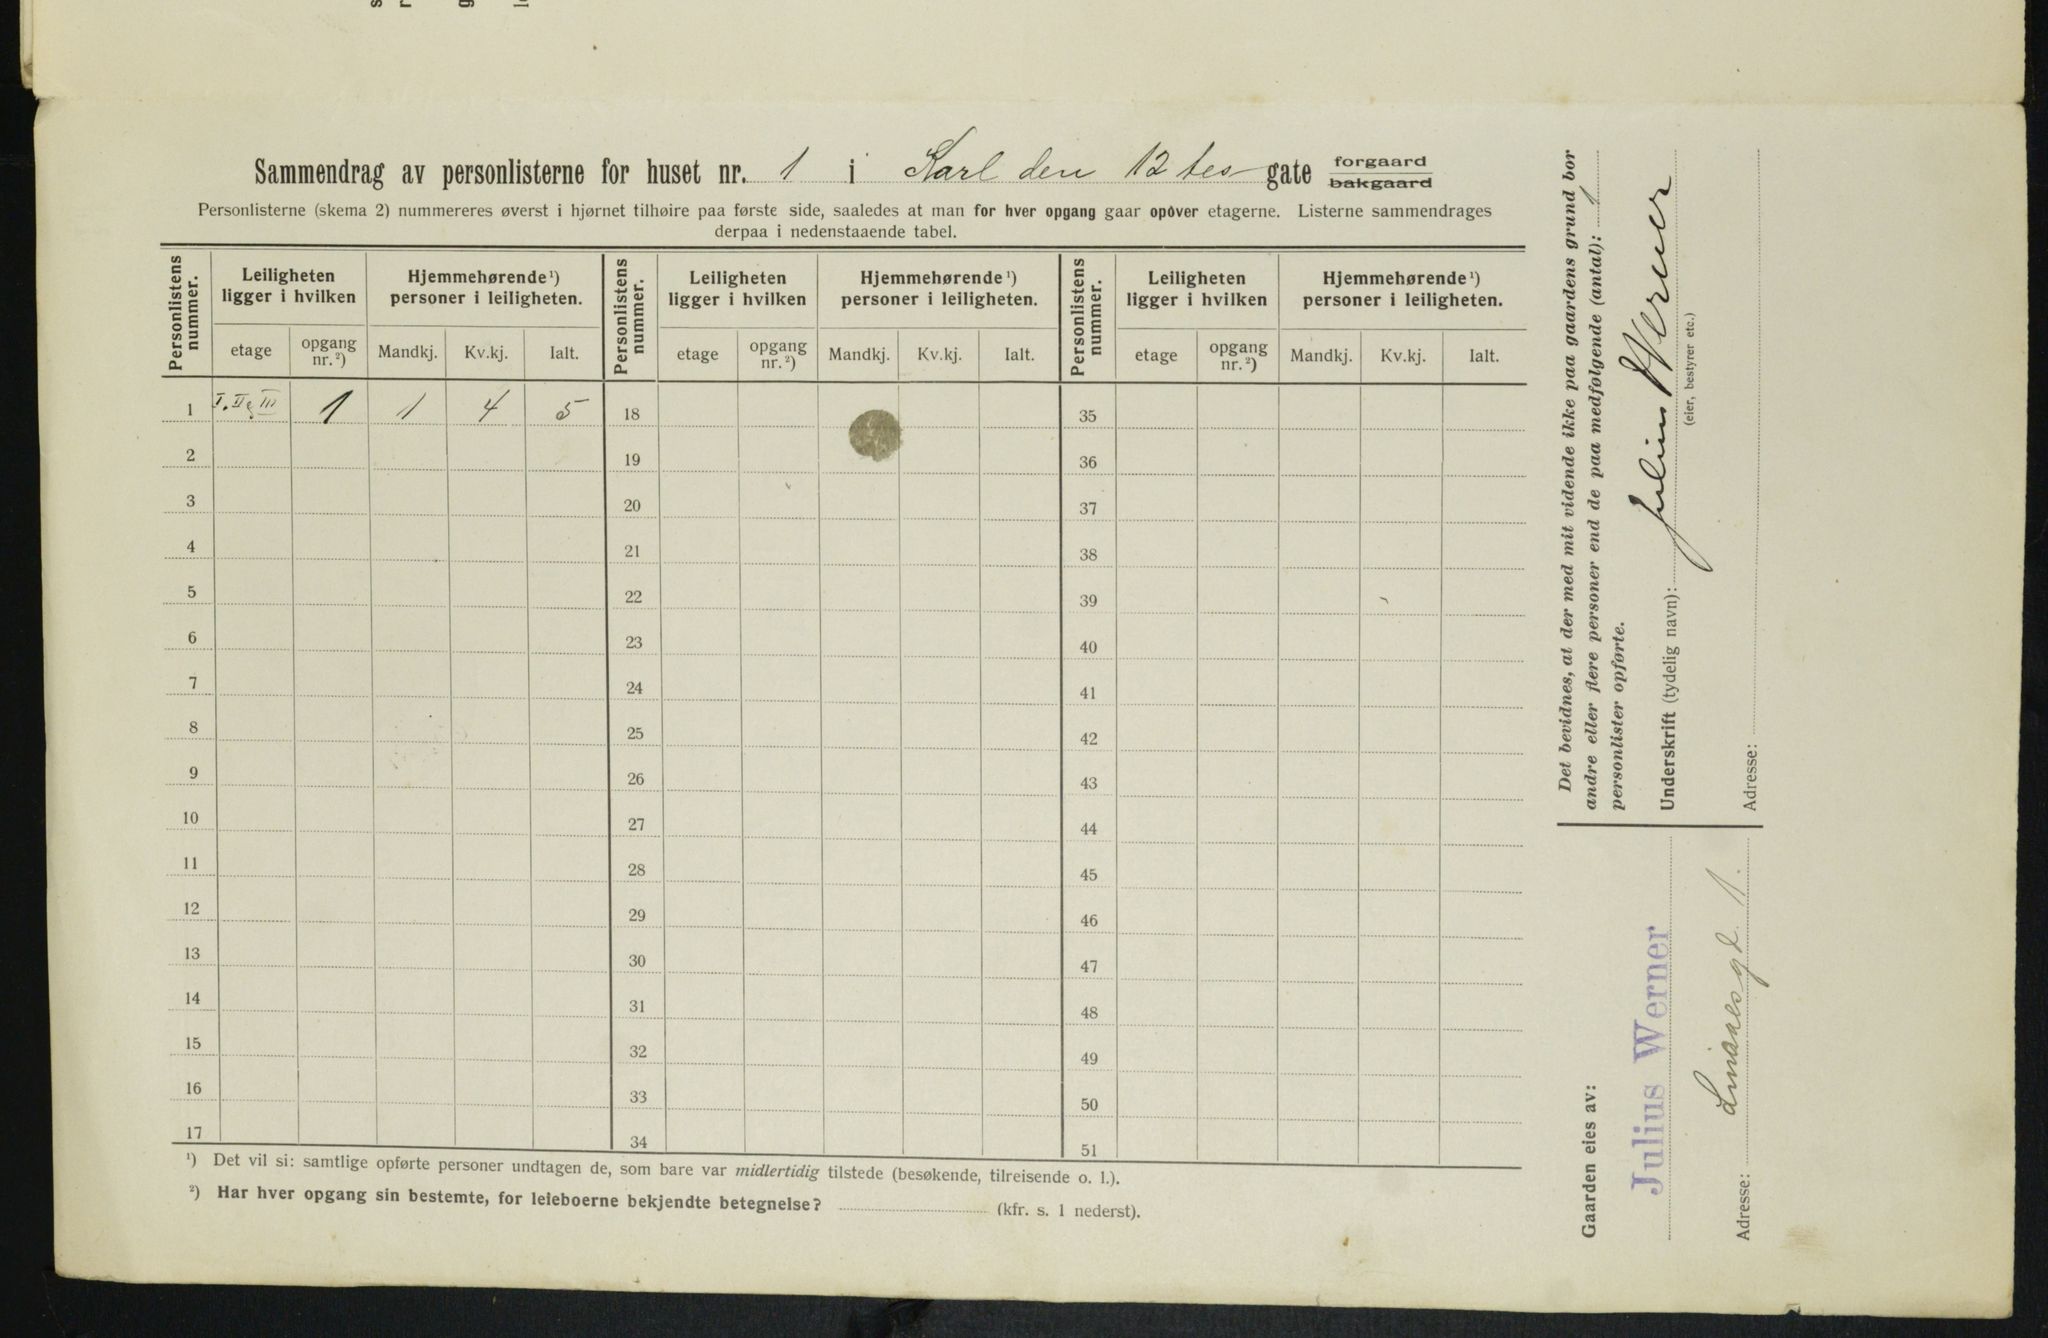 Sammendrag av personlisterne for huset nr. 1 i Karl den 12 tes gate forgaard bakgaard
Personlisterne (skema 2) nummereres øverst i hjørnet tilhøire paa første side, saaledes at man for hver opgang gaar opover etagerne. Listerne sammendrages
derpaa i nedenstaaende tabel.
Personlistens nummer. Leiligheten ligger i hvilken Hjemmehørende ¹) personer i leiligheten. Personlistens nummer. Leiligheten ligger i hvilken Hjemmehørende ¹) personer i leiligheten. Personlistens nummer. Leiligheten ligger i hvilken Hjemmehørende ¹) personer i leiligheten.
etage opgang nr. ²) Mandkj. Kv.kj. Ialt. etage opgang nr. ²) Mandkj. Kv.kj. Ialt. etage opgang nr. ²) Mandkj. Kv.kj. Ialt.
1 I. II g III 1 1 4 5 18 35
2 19 36
3 20 37
4 21 38
5 22 39
6 23 40
7 24 41
8 25 42
9 26 43
10 27 44
11 28 45
12 29 46
13 30 47
14 31 48
15 32 49
16 33 50
17 34 51
¹) Det vil si: samtlige opførte personer undtagen de, som bare var midlertidig tilstede (besøkende, tilreisende o. l.).
²) Har hver opgang sin bestemte, for leieboerne bekjendte betegnelse? (kfr. s. 1 nederst).
Det bevidnes, at der med mit vidende ikke paa gaardens grund bor
andre eller flere personer end de paa medfølgende (antal): 1
personlister opførte.
Underskrift (tydelig navn): Julius Werner
(eier, bestyrer etc.)
Adresse:
Gaarden eies av:
Julius Werner
Adresse: Linaaesgd. 1.